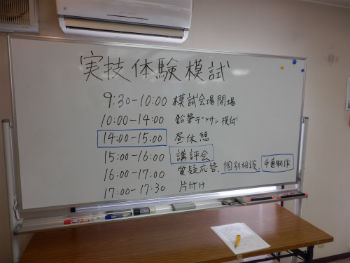 実技体験模試
9:30-10:00 模試会場開場
10:00-14:00 鉛筆デッサン模試
14:00-15:00 昼休憩
15:00-16:00 講評会
16:00-17:00 質疑応答 個別相談
17:00-17:30 片付け